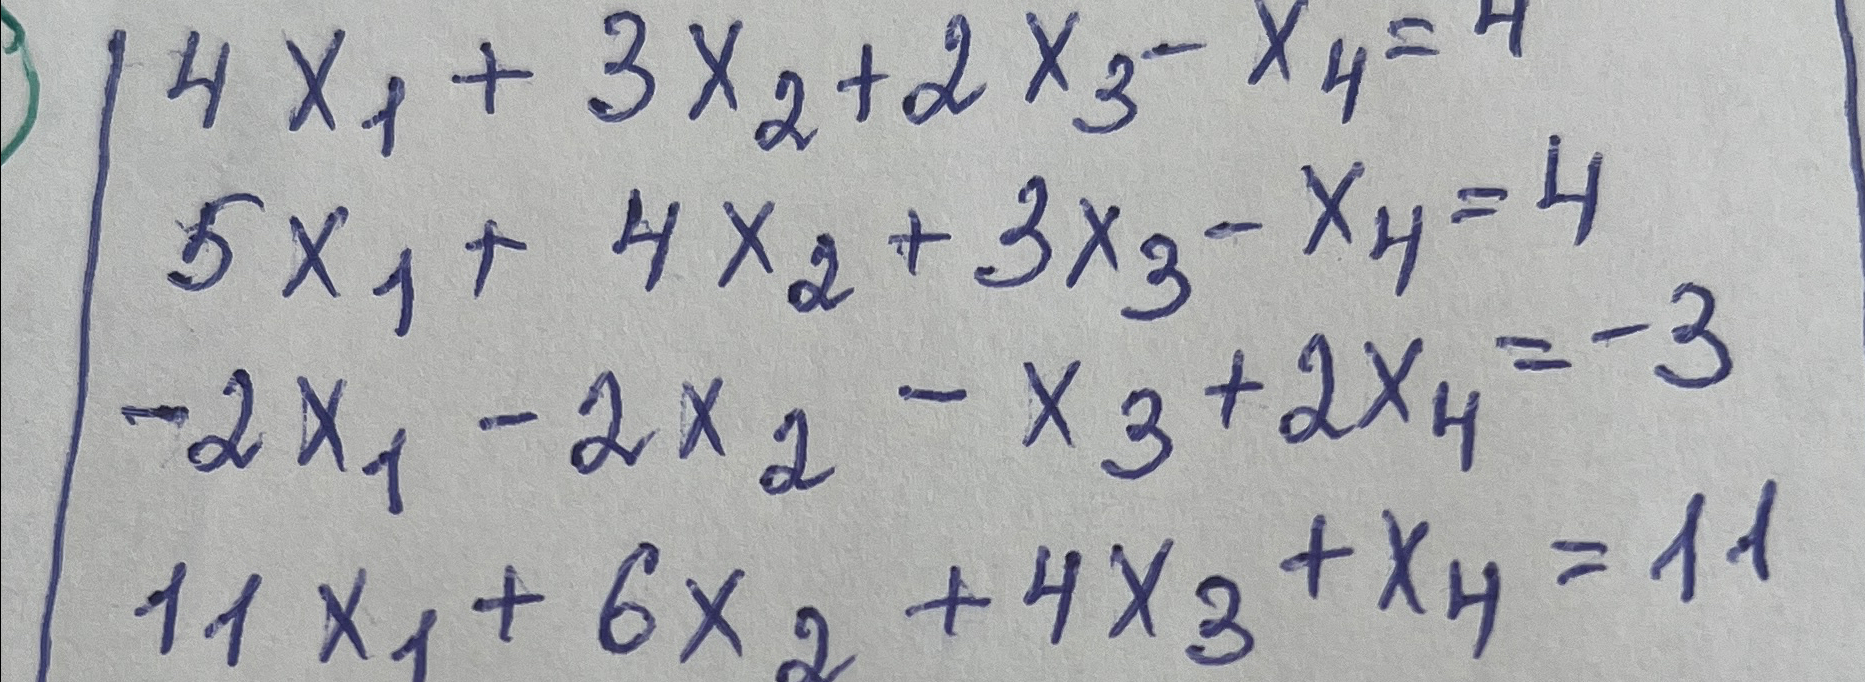 4x₁ + 3x₂ + 2x₃ - x₄ = 4
5x₁ + 4x₂ + 3x₃ - x₄ = 4
-2x₁ - 2x₂ - x₃ + 2x₄ = -3
11x₁ + 6x₂ + 4x₃ + x₄ = 11